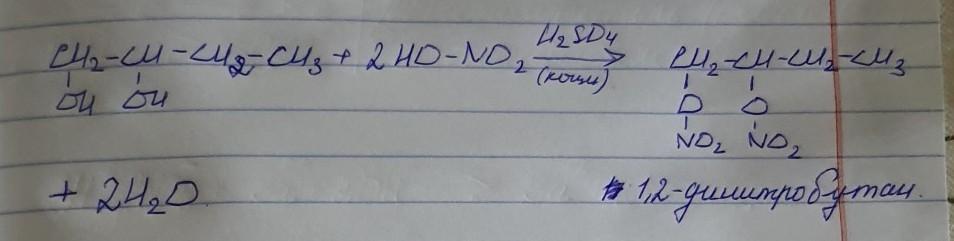 CH2-CH-CH2-CH3 + 2HO-NO2 H2SO4 (конц) → CH2-CH-CH2-CH3
OH OH O O
NO2 NO2
+ 2H2O. 1,2-динитробутан.